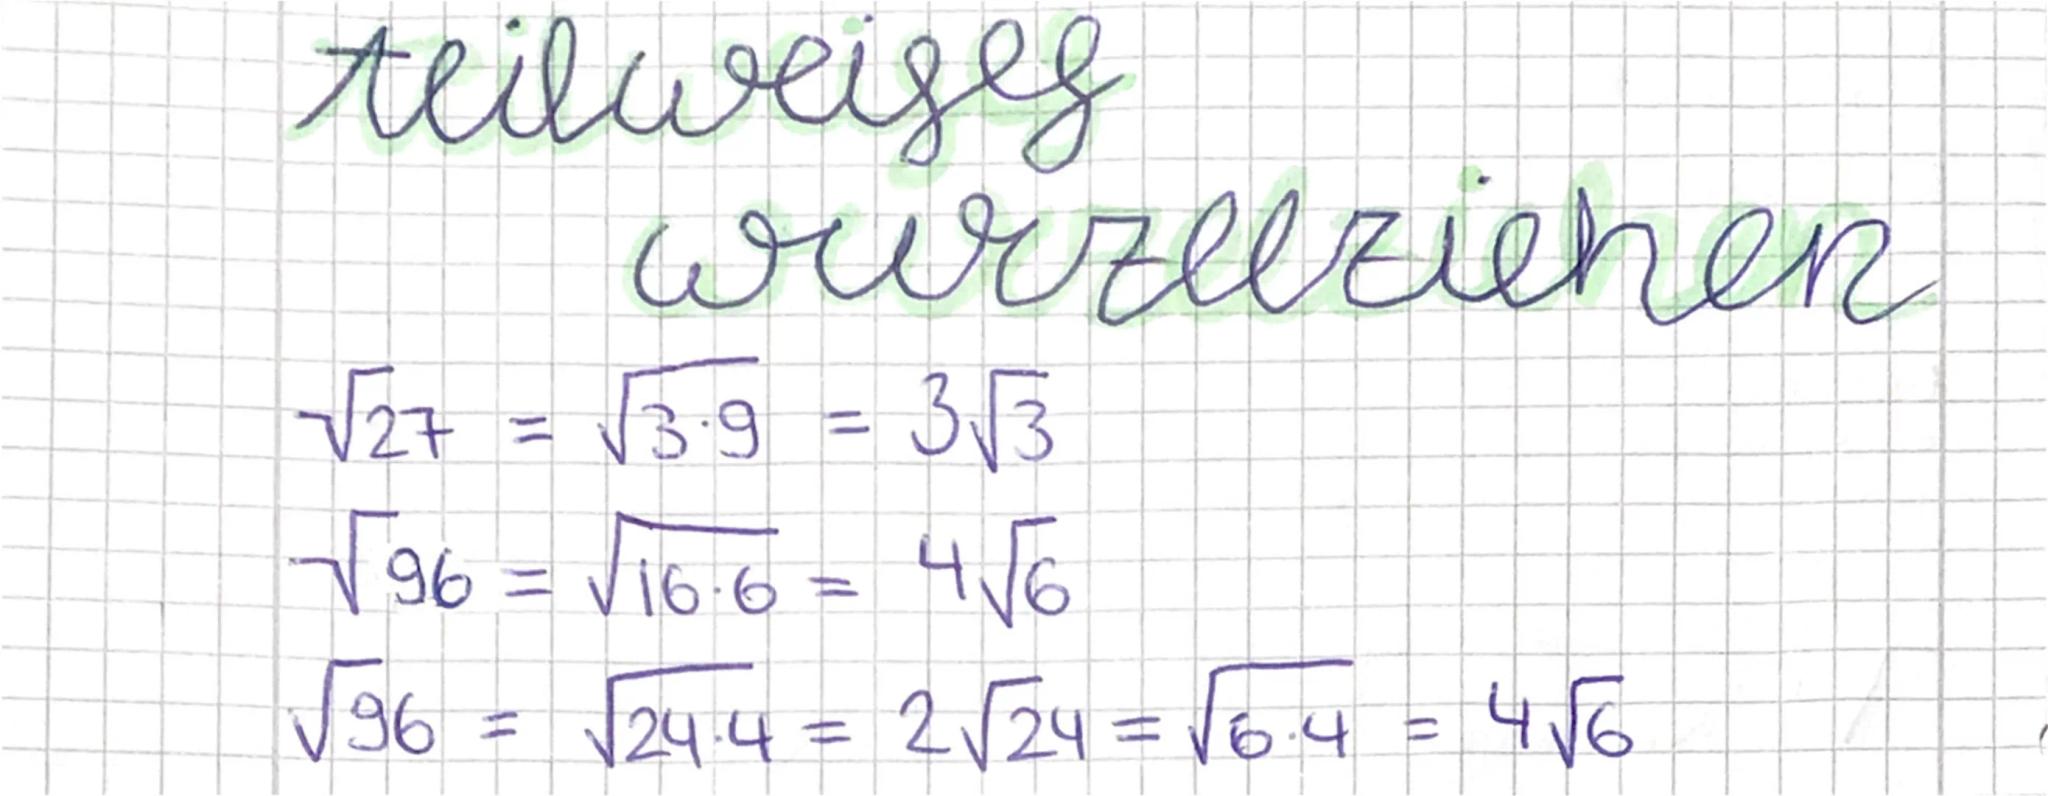 teilweises
wurzelziehen
√27 = √3·9 = 3√3
√96 = √16·6 = 4√6
√96 = √24·4 = 2√24 = √6·4 = 4√6